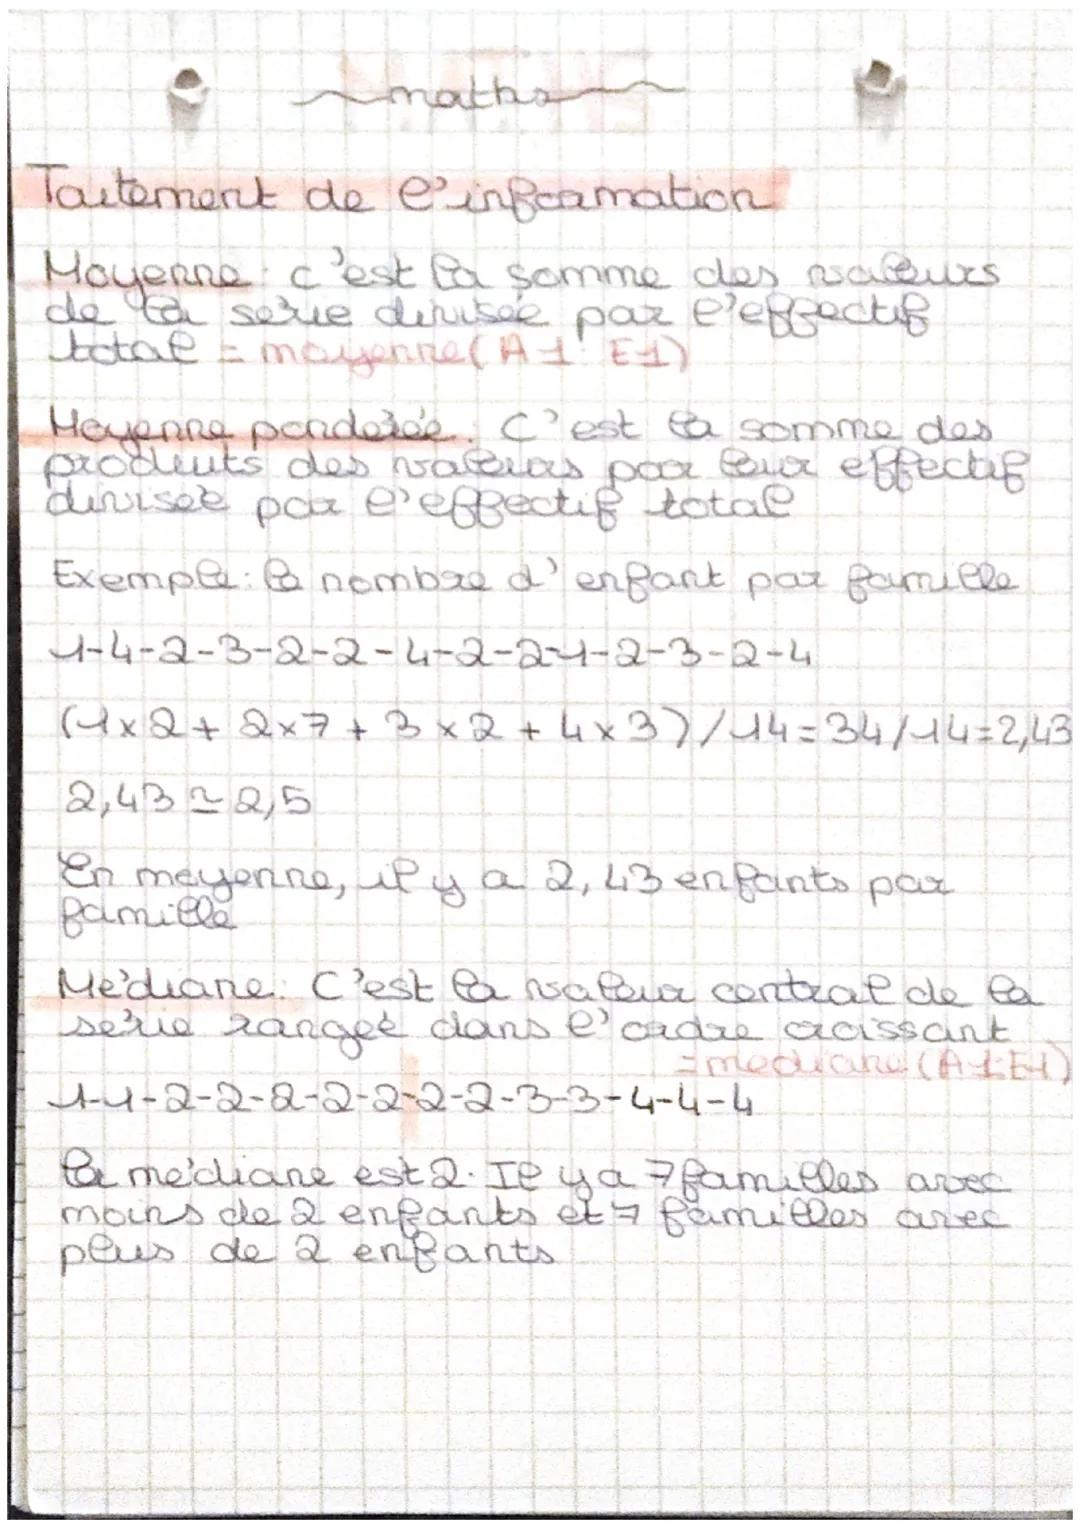 maths
Taitement de l'information
Moyenne : c'est la somme des valeurs
de la série divisée par l'effectif
total = moyenne(A1:E1)
Moyenne pondérée : C'est la somme des
produits des valeurs par leur effectif
divisée par l'effectif total
Exemple : le nombre d'enfant par famille
1-4-2-3-2-2-4-2-2-1-2-3-2-4
(1x2 + 2x7 + 3x2 + 4x3)/14=34/14=2,43
2,43 ≃ 2,5
En moyenne, il y a 2,43 enfants par
famille
Médiane : C'est la valeur central de la
série rangée dans l'ordre croissant
=mediane(A1:E1)
1-1-2-2-2-2-2-2-2-3-3-4-4-4
La médiane est 2. Il y a 7 familles avec
moins de 2 enfants et 7 familles avec
plus de 2 enfants